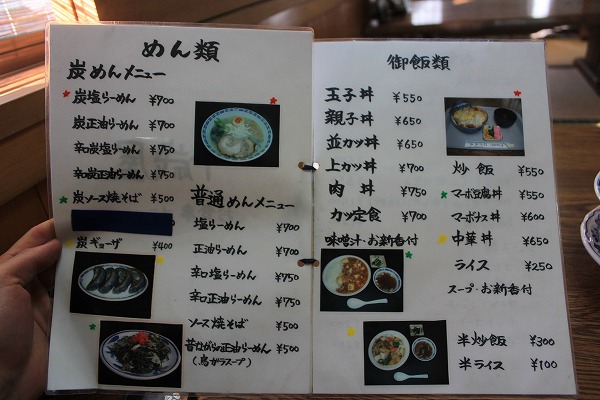 めん類
炭めんメニュー
炭塩らーめん ¥700
炭正油らーめん ¥700
辛口炭塩らーめん ¥750
辛口炭正油らーめん ¥750
炭ソース焼そば ¥500
炭ギョーザ ¥400
普通めんメニュー
塩らーめん ¥700
正油らーめん ¥700
辛口塩らーめん ¥750
辛口正油らーめん ¥750
ソース焼そば ¥500
昔ながらの正油らーめん ¥500
(鳥がらスープ)
御飯類
玉子丼 ¥550
親子丼 ¥650
並カツ丼 ¥650
上カツ丼 ¥700
肉丼 ¥750
カツ定食 ¥700
味噌汁・お新香付
炒飯 ¥550
マーボ豆腐丼 ¥550
マーボナス丼 ¥600
中華丼 ¥650
ライス ¥250
スープ・お新香付
半炒飯 ¥300
半ライス ¥100